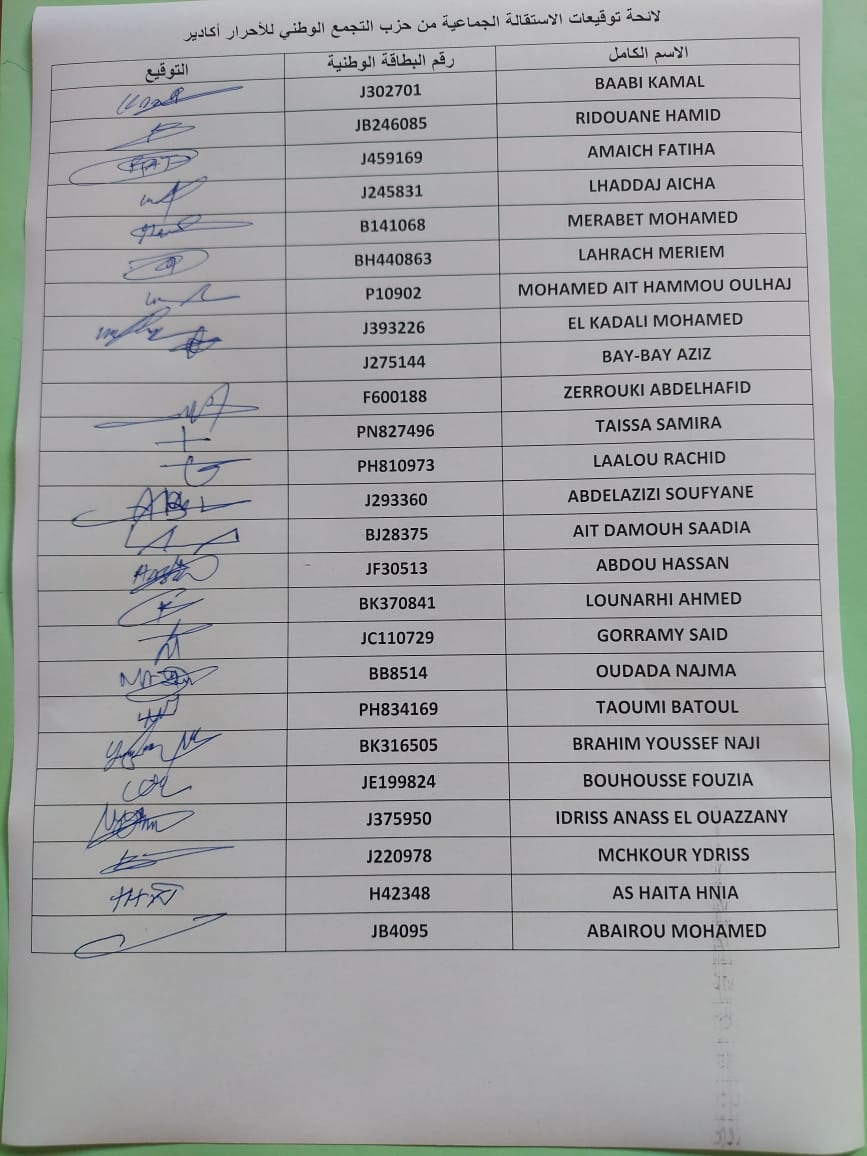 لائحة توقيعات الاستقالة الجماعية من حزب التجمع الوطني للأحرار أكادير
الاسم الكامل رقم البطاقة الوطنية التوقيع
BAABI KAMAL J302701
RIDOUANE HAMID JB246085
AMAICH FATIHA J459169
LHADDAJ AICHA J245831
MERABET MOHAMED B141068
LAHRACH MERIEM BH440863
MOHAMED AIT HAMMOU OULHAJ P10902
EL KADALI MOHAMED J393226
BAY-BAY AZIZ J275144
ZERROUKI ABDELHAFID F600188
TAISSA SAMIRA PN827496
LAALOU RACHID PH810973
ABDELAZIZI SOUFYANE J293360
AIT DAMOUH SAADIA BJ28375
ABDOU HASSAN JF30513
LOUNARHI AHMED BK370841
GORRAMY SAID JC110729
OUDADA NAJMA BB8514
TAOUMI BATOUL PH834169
BRAHIM YOUSSEF NAJI BK316505
BOUHOUSSE FOUZIA JE199824
IDRISS ANASS EL OUAZZANY J375950
MCHKOUR YDRISS J220978
AS HAITA HNIA H42348
ABAIROU MOHAMED JB4095